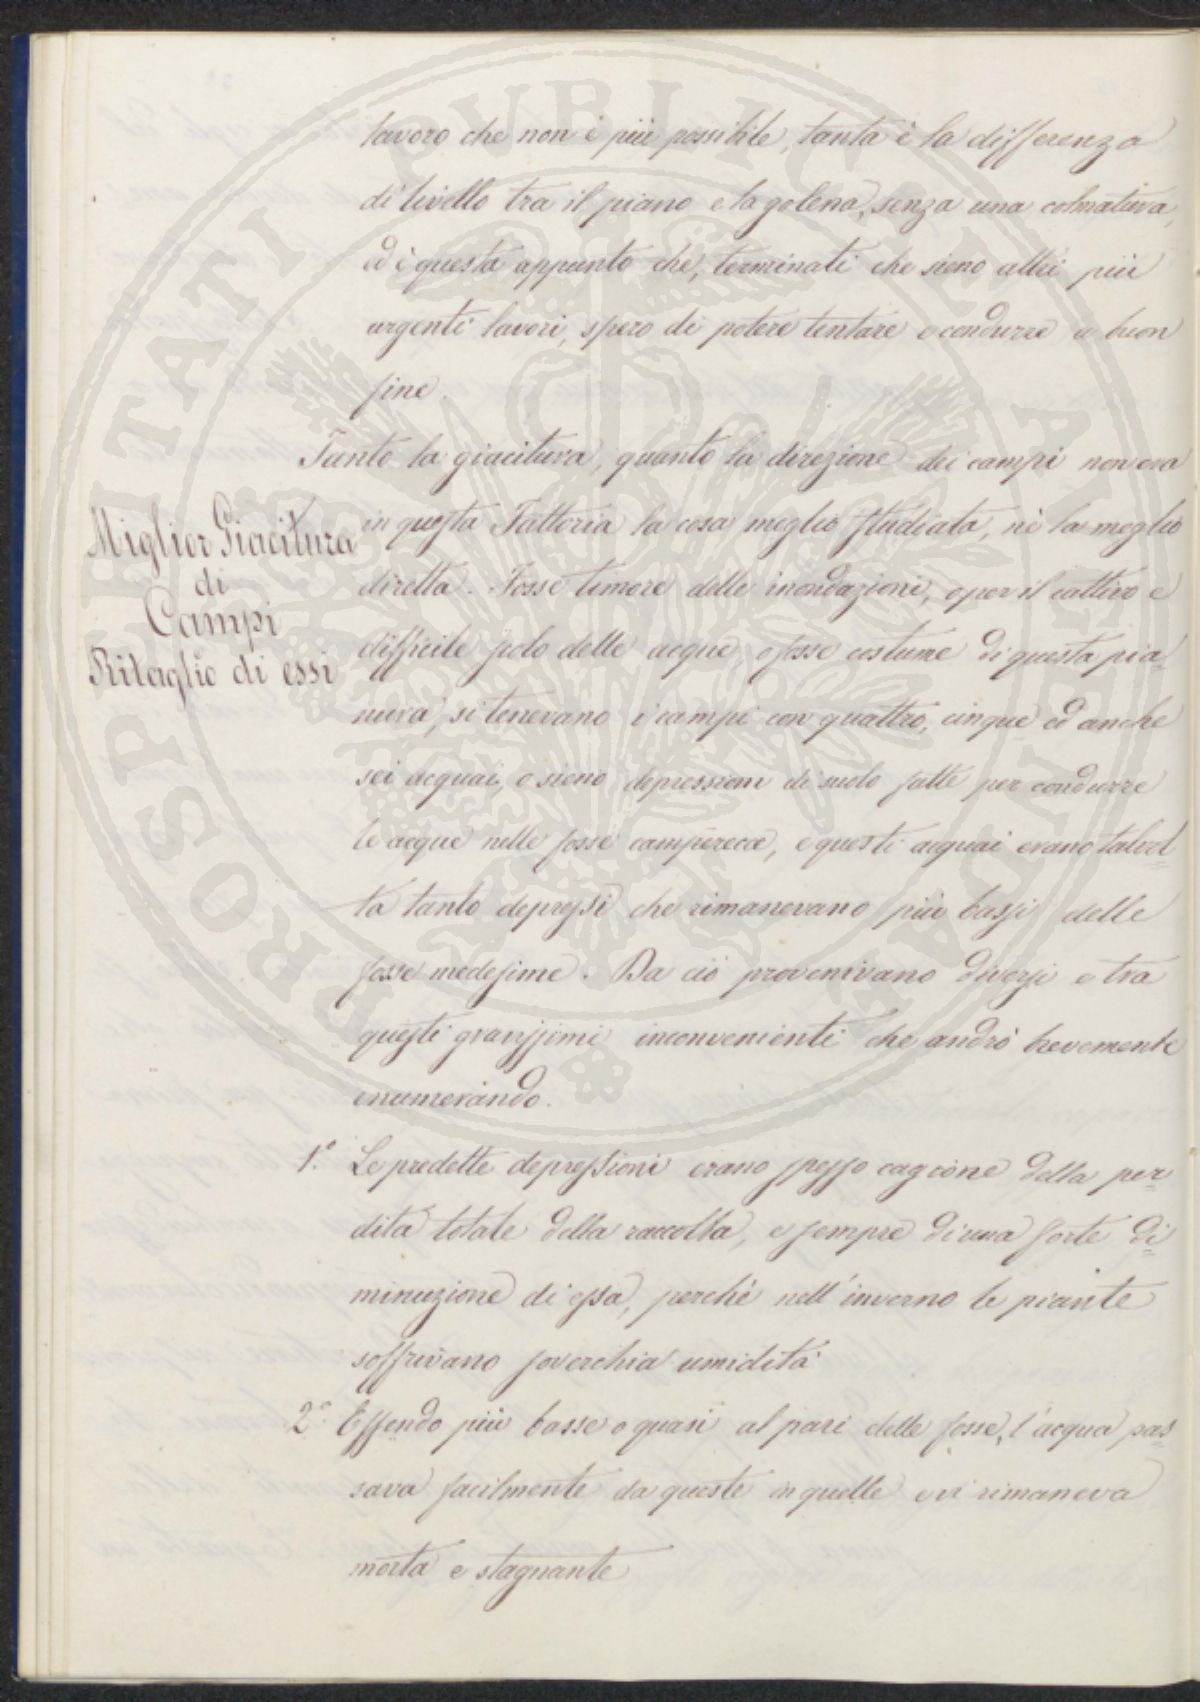 lavoro che non è più possibile, tanta è la differenza
di livello tra il piano e la golena, senza una colmatura,
ed è questa appunto che, terminati che sieno altri più
urgenti lavori, spero di potere tentare e condurre a buon
fine.
Tanto la giacitura, quanto la direzione dei campi non era
Miglior Giacitura
di
Campi
Ritaglio di essi
in questa Fattoria la cosa meglio studiata, nè la meglio
diretta. Fosse timore delle inondazioni, o per il cattivo e
difficile scolo delle acque, o fosse costume di questa pia=
nura, si tenevano i campi con quattro, cinque ed anche
sei acquai, o sieno depressioni di suolo fatte per condurre
le acque nelle fosse camperecce, e questi acquai erano talvol=
ta tanto depressi che rimanevano più bassi delle
fosse medesime. Da ciò provenivano diversi e tra
questi gravissimi inconvenienti che andrò brevemente
enumerando.
1.° Le predette depressioni erano spesso cagione della per=
dita totale della raccolta, e sempre di una forte di=
minuzione di essa, perchè nell'inverno le piante
soffrivano soverchia umidità.
2.° Essendo più basse o quasi al pari delle fosse, l'acqua pas=
sava facilmente da queste in quelle e vi rimaneva
morta e stagnante
PROSPERITATI PVBLICAE AVGENDAE